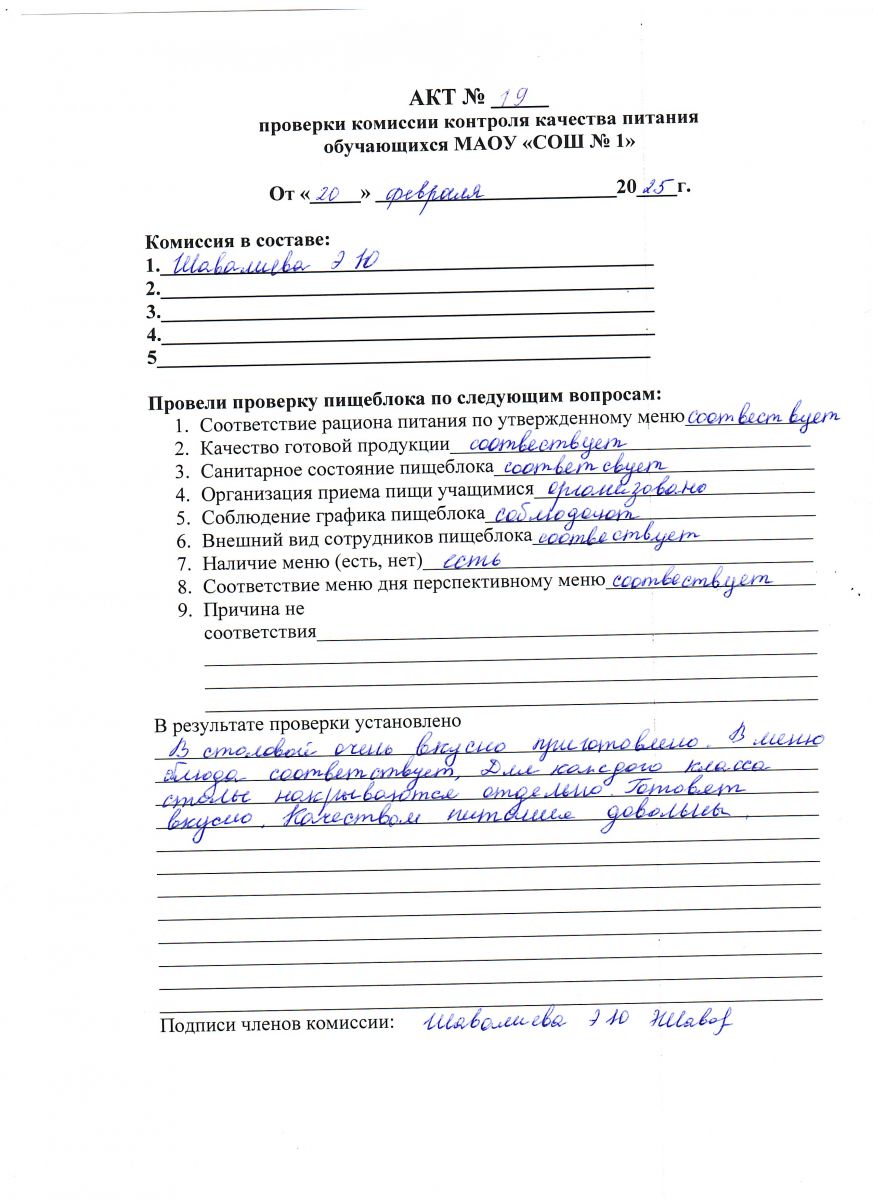 АКТ № 19
проверки комиссии контроля качества питания
обучающихся МАОУ «СОШ № 1»
От «20» февраля 2025г.
Комиссия в составе:
1. Шавалиева Э Ю
2.
3.
4.
5
Провели проверку пищеблока по следующим вопросам:
1. Соответствие рациона питания по утвержденному меню соотвествует
2. Качество готовой продукции соотвествует
3. Санитарное состояние пищеблока соответсвует
4. Организация приема пищи учащимися организовано
5. Соблюдение графика пищеблока соблюдают
6. Внешний вид сотрудников пищеблока соотвествует
7. Наличие меню (есть, нет) есть
8. Соответствие меню дня перспективному меню соотвествует
9. Причина не
соответствия
В результате проверки установлено
В столовой очень вкусно приготовлено. В меню
блюда соответствует, Для каждого класса
столы накрываются отдельно. Готовят
вкусно. Качеством питания довольны.
Подписи членов комиссии: Шавалиева Э Ю